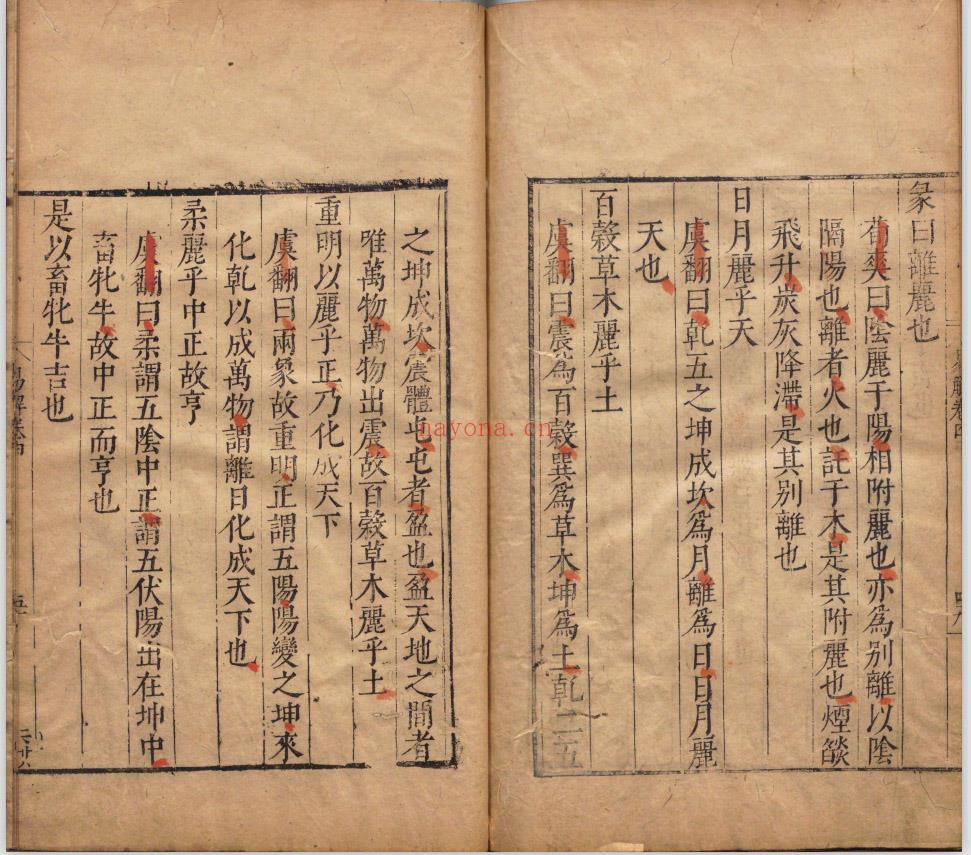 彖曰離麗也
荀爽曰陰麗于陽相附麗也亦爲别離以陰
隔陽也離者火也託于木是其附麗也煙燄
飛升炭灰降滯是其别離也
日月麗乎天
虞翻曰乾五之坤成坎爲月離爲日日月麗
天也
百糓草木麗乎土
虞翻曰震爲百糓巽爲草木坤爲土乾二五
之坤成坎震體屯屯者盈也盈天地之間者
唯萬物萬物出震故百糓草木麗乎土
重明以麗乎正乃化成天下
虞翻曰兩象故重明正謂五陽陽變之坤來
化乾以成萬物謂離日化成天下也
柔麗乎中正故亨
虞翻曰柔謂五陰中正謂五伏陽出在坤中
畜牝牛故中正而亨也
是以畜牝牛吉也
nayona.cn